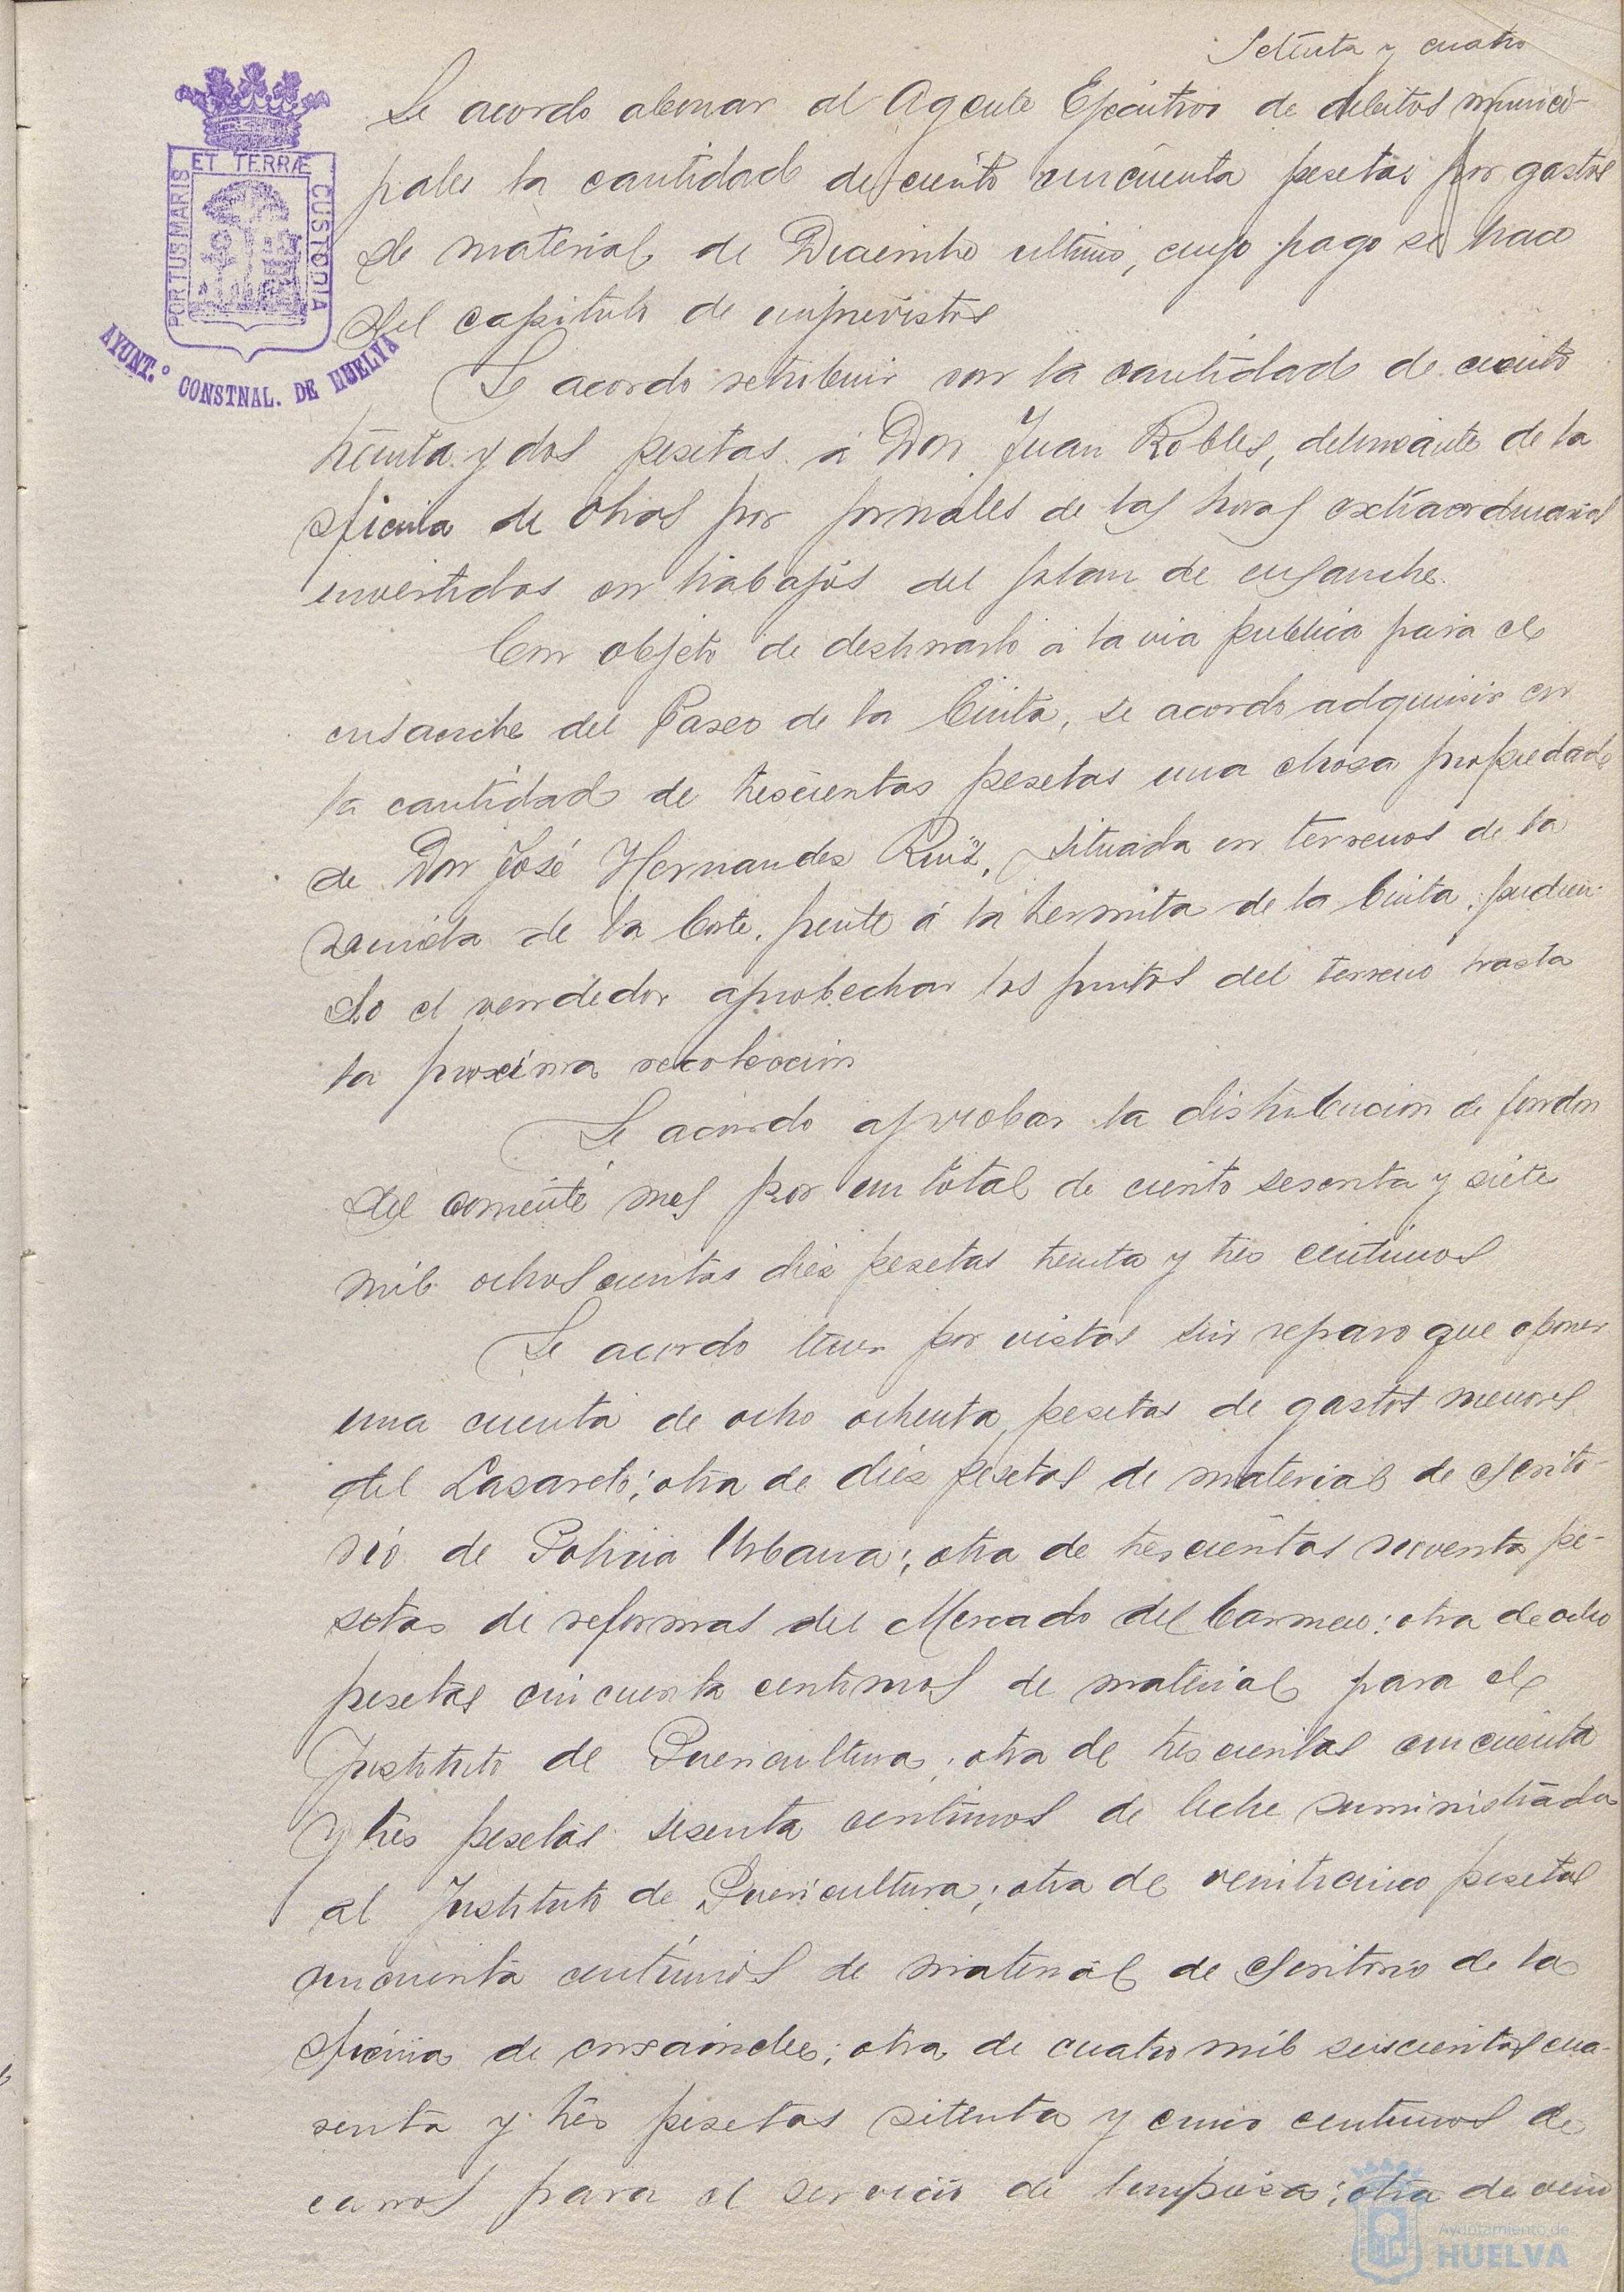 Setenta y cuatro
PORTUS MARIS ET TERRÆ CUSTODIA
AYUNT.º CONSTNAL. DE HUELVA
Se acordo abonar al Agente Ejecutivo de debitos munici-
pales la cantidad de ciento cincuenta pesetas por gastos
de material de Diciembre ultimo, cuyo pago se hace
del capitulo de imprevistos
Se acordo retribuir con la cantidad de ciento
treinta y dos pesetas á Don Juan Robles, delineante de la
oficina de obras por jornales de las horas extraordinarias
invertidas en trabajos del plan de ensanche.
Con objeto de destinarlo á la via publica para el
ensanche del Paseo de la Cinta, se acordo adquirir en
la cantidad de trescientas pesetas una choza propiedad
de Don José Hernandez Ruiz, situada en terrenos de la
de la Corte, frente á la hermita de la Cinta, pudien-
do el vendedor aprobechar los frutos del terreno hasta
la proxima recoleccion
Se acordo aprobar la distribucion de fondos
del corriente mes por un total de ciento sesenta y siete
mil ochoscientas diez pesetas treinta y tres centimos
Se acordo tener por vistas sin reparo que oponer
una cuenta de ocho ochenta pesetas de gastos menores
del Lazareto; otra de diez pesetas de material de escrito-
rio de Policia Urbana; otra de trescientas noventa pe-
setas de reformas del Mercado del Carmen; otra de ocho
pesetas cincuenta centimos de material para el
Instituto de Puericultura; otra de trescientas cincuenta
y tres pesetas sesenta centimos de leche suministrada
al Instituto de Puericultura; otra de veinticinco pesetas
cincuenta centimos de material de escritorio de la
oficina de ensanche; otra de cuatro mil seiscientas cua-
renta y tres pesetas setenta y cinco centimos de
carros para el servicio de limpieza; otra de cien
Ayuntamiento de
HUELVA